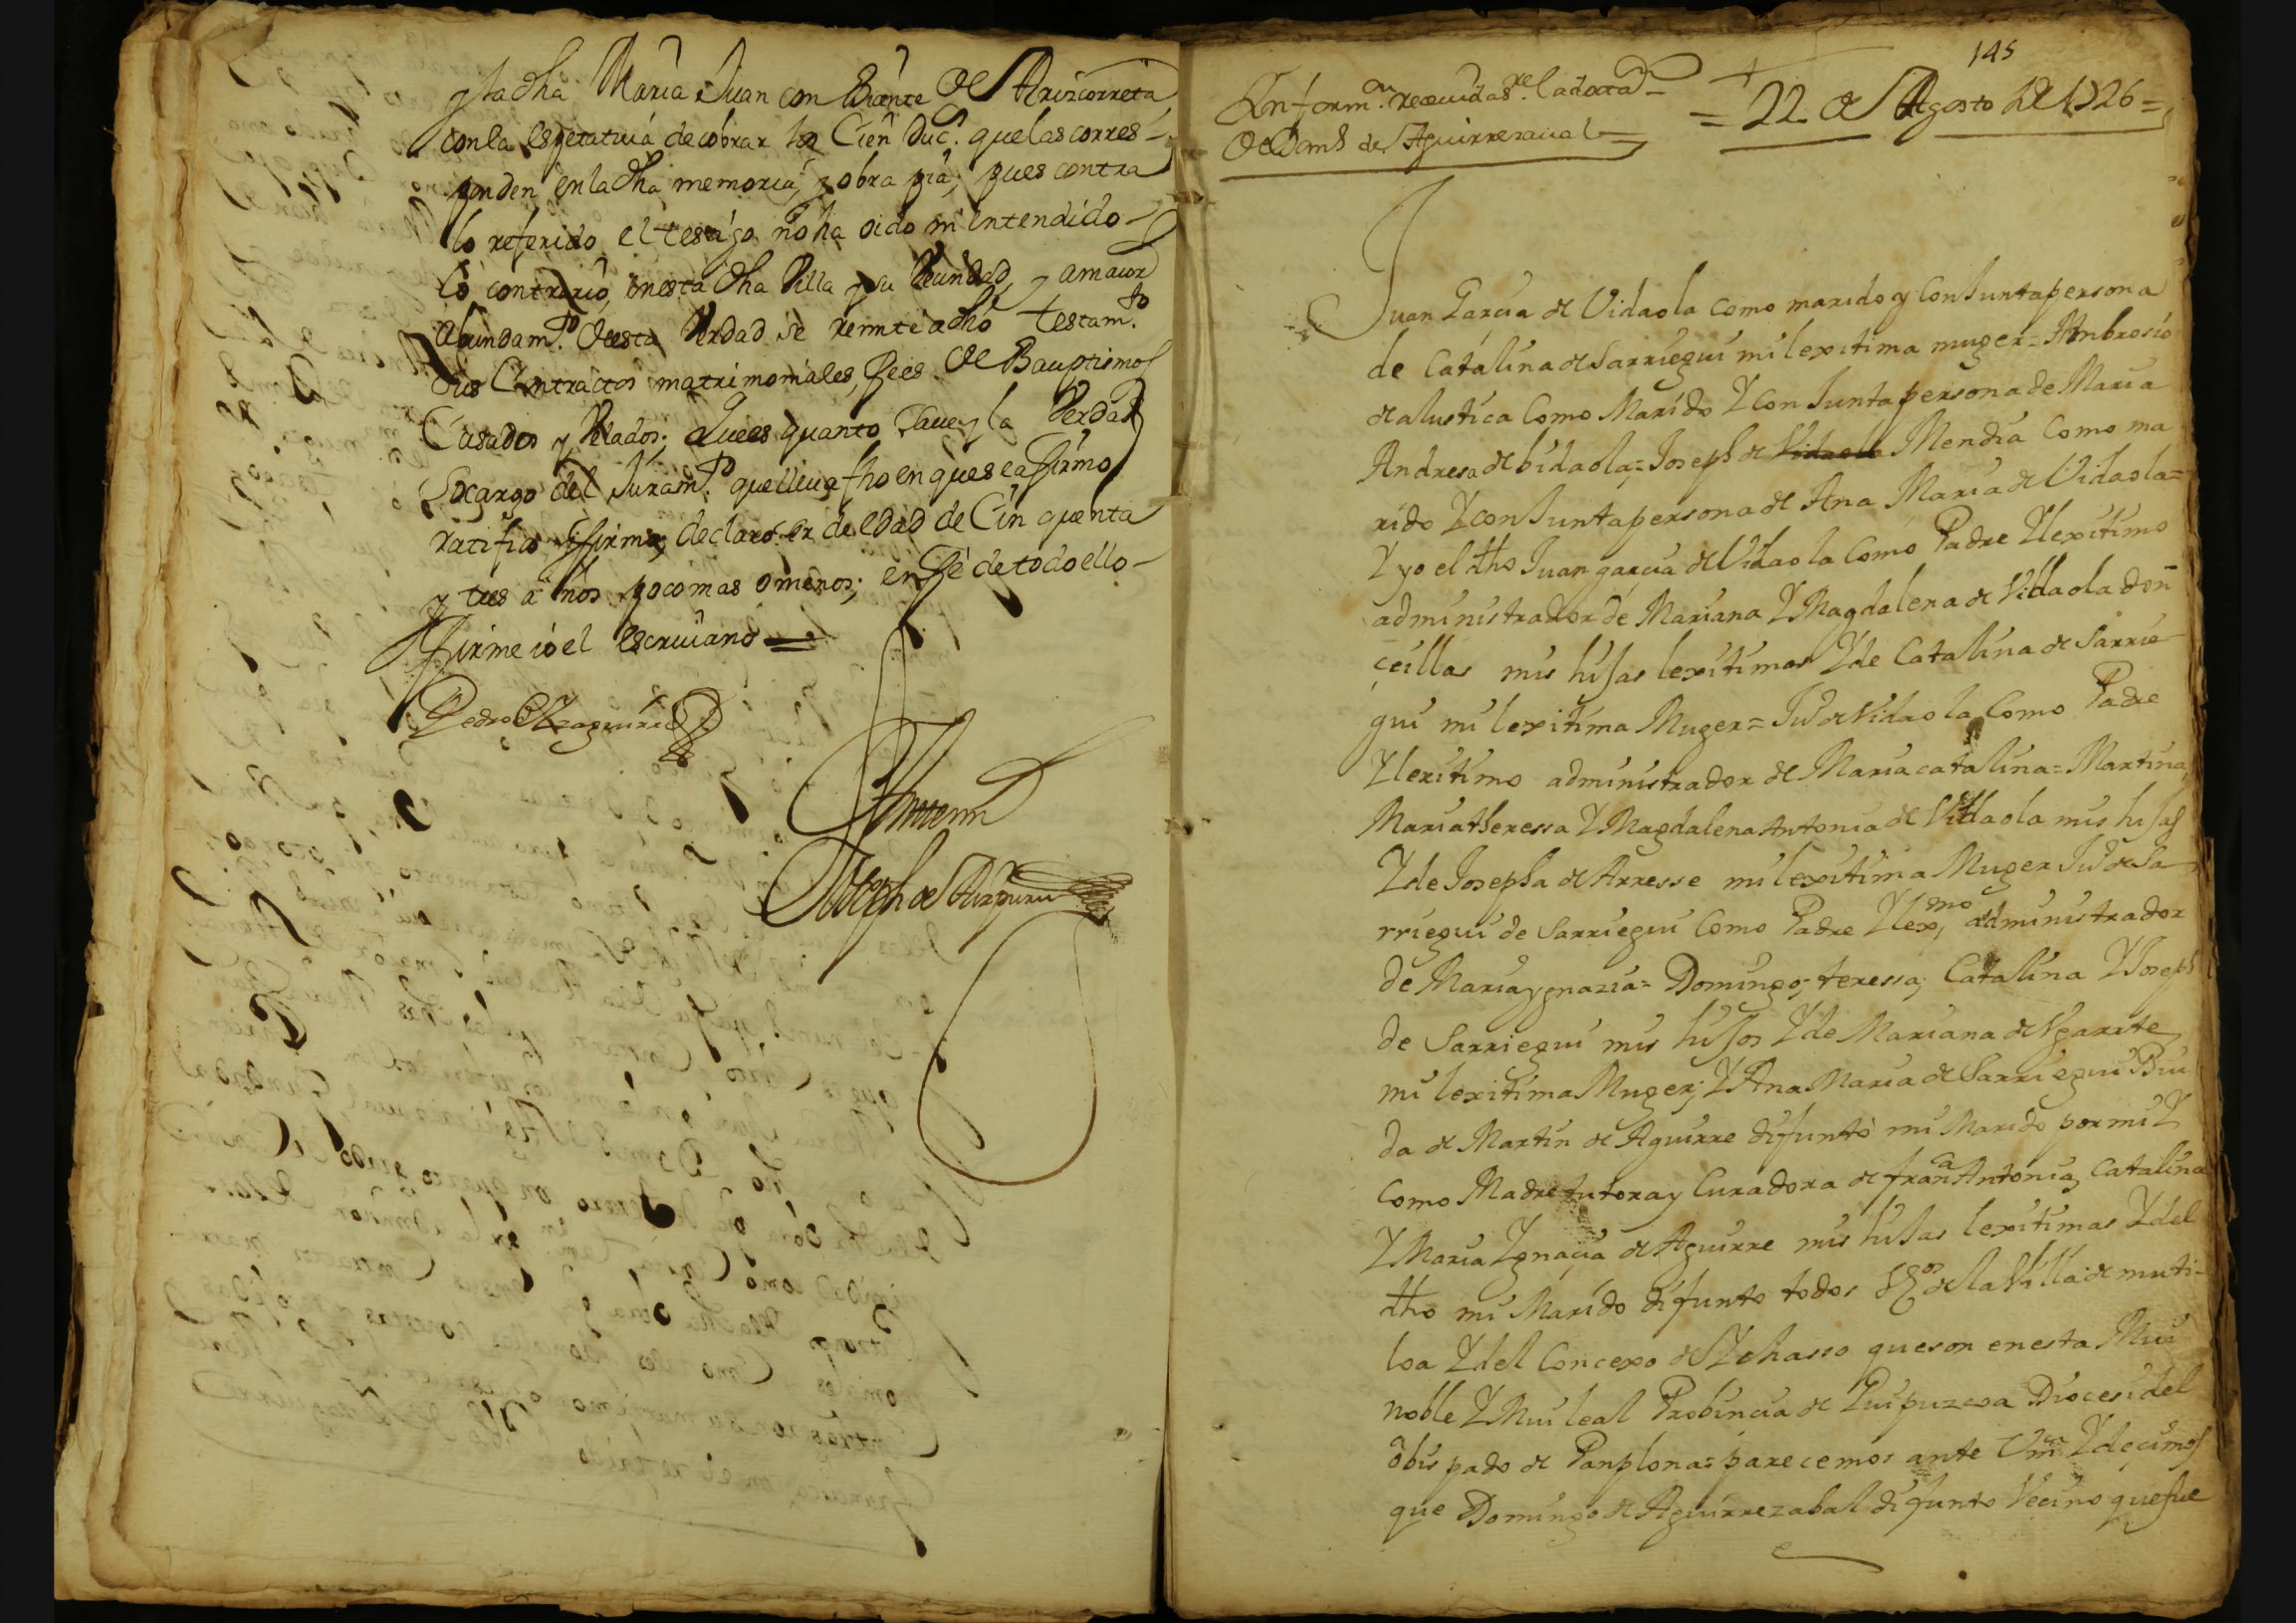 y la dha Maria Juan con Biente de Arizcorreta
con la espetativa de cobrar los Cien Duc.s que las corres-
ponden en la dha memoria, y obra pia, pues contra
lo referido el testigo no ha oido ni entendido
lo contrario, en esta dha Villa y su Vecindad, y a maior
abundam.to de esta Verdad se remite a dho testam.to
sus Contractos matrimoniales, fees de Bauptismos
Casados y Velados; que es quanto save y la Verdad
Socargo del Juram.to que lleva fho en que se afirmo
ratifico y firmo; declaro ser de edad de Cinquenta
y tres años poco mas o menos; en fe de todo ello
firme io el escrivano =
Pedro de Yzaguirre
Ante mi
Joseph de Aizpuru
145
Ynform.on recivida s.re la dota.n
de Dom.o de Aguirrezaval
= 22 de Agosto de 1726 =
Juan Garcia de Vidaola como marido y conJunta persona
de Catalina de Sarriegui mi lexitima muger = Ambrosio
de alustica Como Marido Y conJunta persona de Maria
Andresa de bidaola = Joseph de Vidaola Mendia Como ma
rido Y conJunta persona de Ana Maria de Vidaola =
Y yo el dho Juan garcia de Vidaola Como Padre Y lexitimo
administrador de Mariana Y Magdalena de Vidaola don
ceillas mis hiJas lexitimas Y de Catalina de Sarrie
gui mi lexitima Muger = Ju.o de Vidaola Como Padre
Y lexitimo administrador de Maria catalina = Martina
Maria theressa Y Magdalena Antonia de Vidaola mis hiJas
Y de Josepha de Arresse mi lexitima Muger Ju.o de Sa
rriegui de Sarriegui Como Padre Y lex.mo administrador
de Maria ygnazia = Domingo, teressa, Catalina Y Joseph
de Sarriegui mis hiJos Y de Mariana de Ugarte
mi lexitima Muger; Y Ana Maria de Sarriegui Biu
da de Martin de Aguirre difunto mi Marido por mi Y
como Madre tutora y Curadora de fran.ca Antonia, Catalina
Y Maria Ygnacia de Aguirre mis hiJas lexitimas Y del
dho mi Marido difunto todos Vz.os de la Villa de muti-
loa Y del Concexo de Ychasso que son en esta Mui
noble Y Mui leal Probincia de Guipuzcoa Diocesi del
obispado de Panplona = parecemos ante Vm Y decimos
que Domingo de Aguirrezabal difunto Vecino que fue